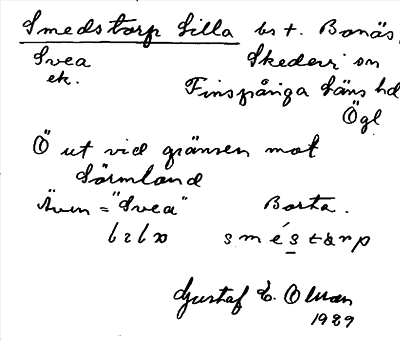 Smedstorp Lilla bs t. Bonäs,
Svea Skedevi sn
ek. Finspånga läns hd
Ögl
Ö ut vid gränsen mot
Sörmland
Även = "Svea" Borta.
Gustaf E. Olman
1929